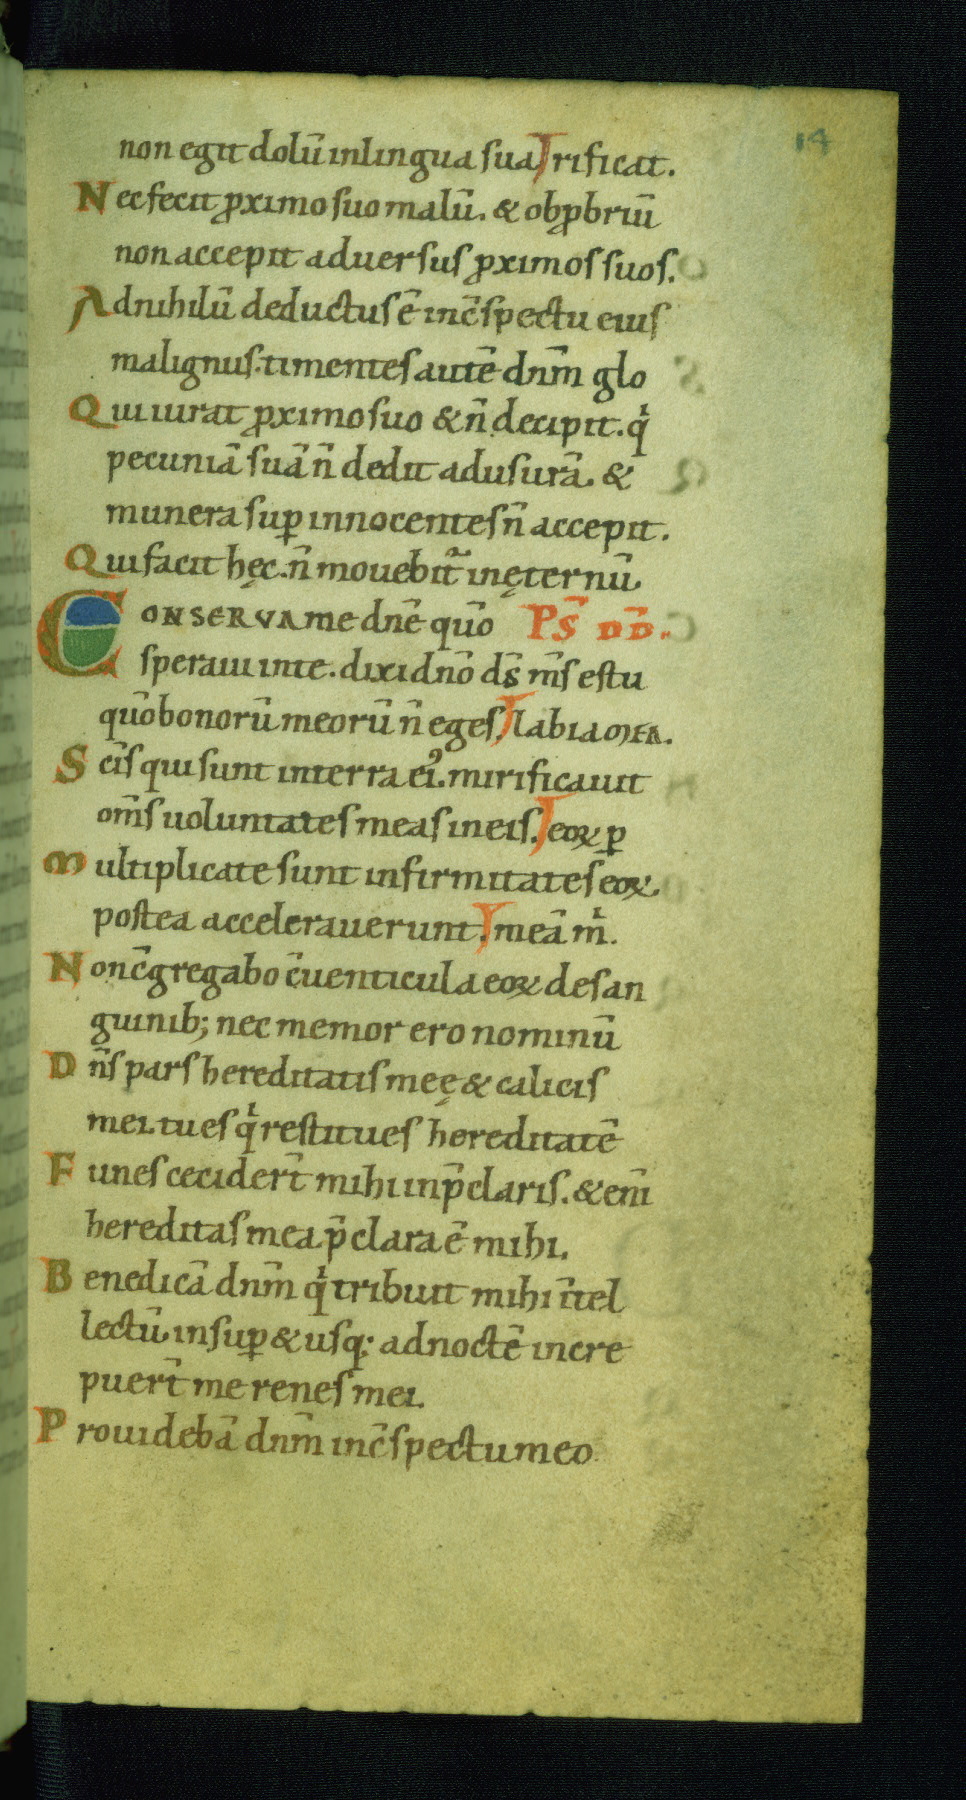 14
non egit dolū in lingua sua. rificat.
Nec fecit ꝓximo suo malū. & obꝓbriū
non accepit adversus ꝓximos suos.
Ad nihilū deductus ē in c̄spectu eius
malignus. timentes autē dnm̄ glo
Qui iurat ꝓximo suo & n̄ decipit. qͥ
pecuniā suā n̄ dedit ad usurā. &
munera suꝑ innocentes n̄ accepit.
Qui facit hęc. n̄ movebit᷑ in ęternū.
CONSERVA me dnē quō Ps̄ DD̄.
speravi in te. dixi dnō ds̄ ms̄ es tu
quō bonorū meorū n̄ eges. labia mea.
Scīs qui sunt in terra eiꝰ. mirificavit
oms̄ voluntates meas in eis. eoꝝ ꝑ
Multiplicate sunt infirmitates eoꝝ
postea acceleraverunt. meā mͥ.
Non c̄gregabo c̄venticula eoꝝ de san
guinib; nec memor ero nominū
Dn̄s pars hereditatis meę & calicis
mei. tu es qͥ restitues hereditatē
Funes cecidert̄ mihi in p̄claris. & enī
hereditas mea p̄clara ē mihi.
Benedicā dnm̄ qͥ tribuit mihi īntel
lectū. insuꝑ & usq; ad noctē incre
puert̄ me renes mei.
Providebā dnm̄ in c̄spectu meo